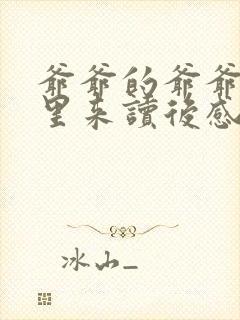 爺爺的爺爺
里来讀後感
冰山_